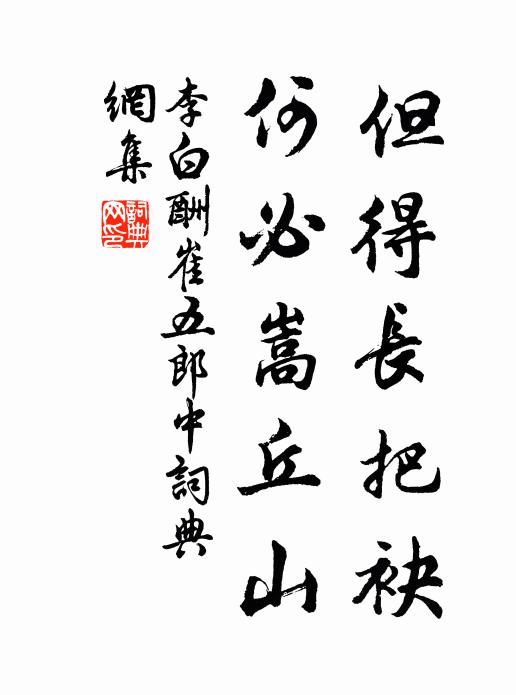 但得長把袂
何必嵩丘山
李白酬崔五郎中詞典
網集
詞典網印